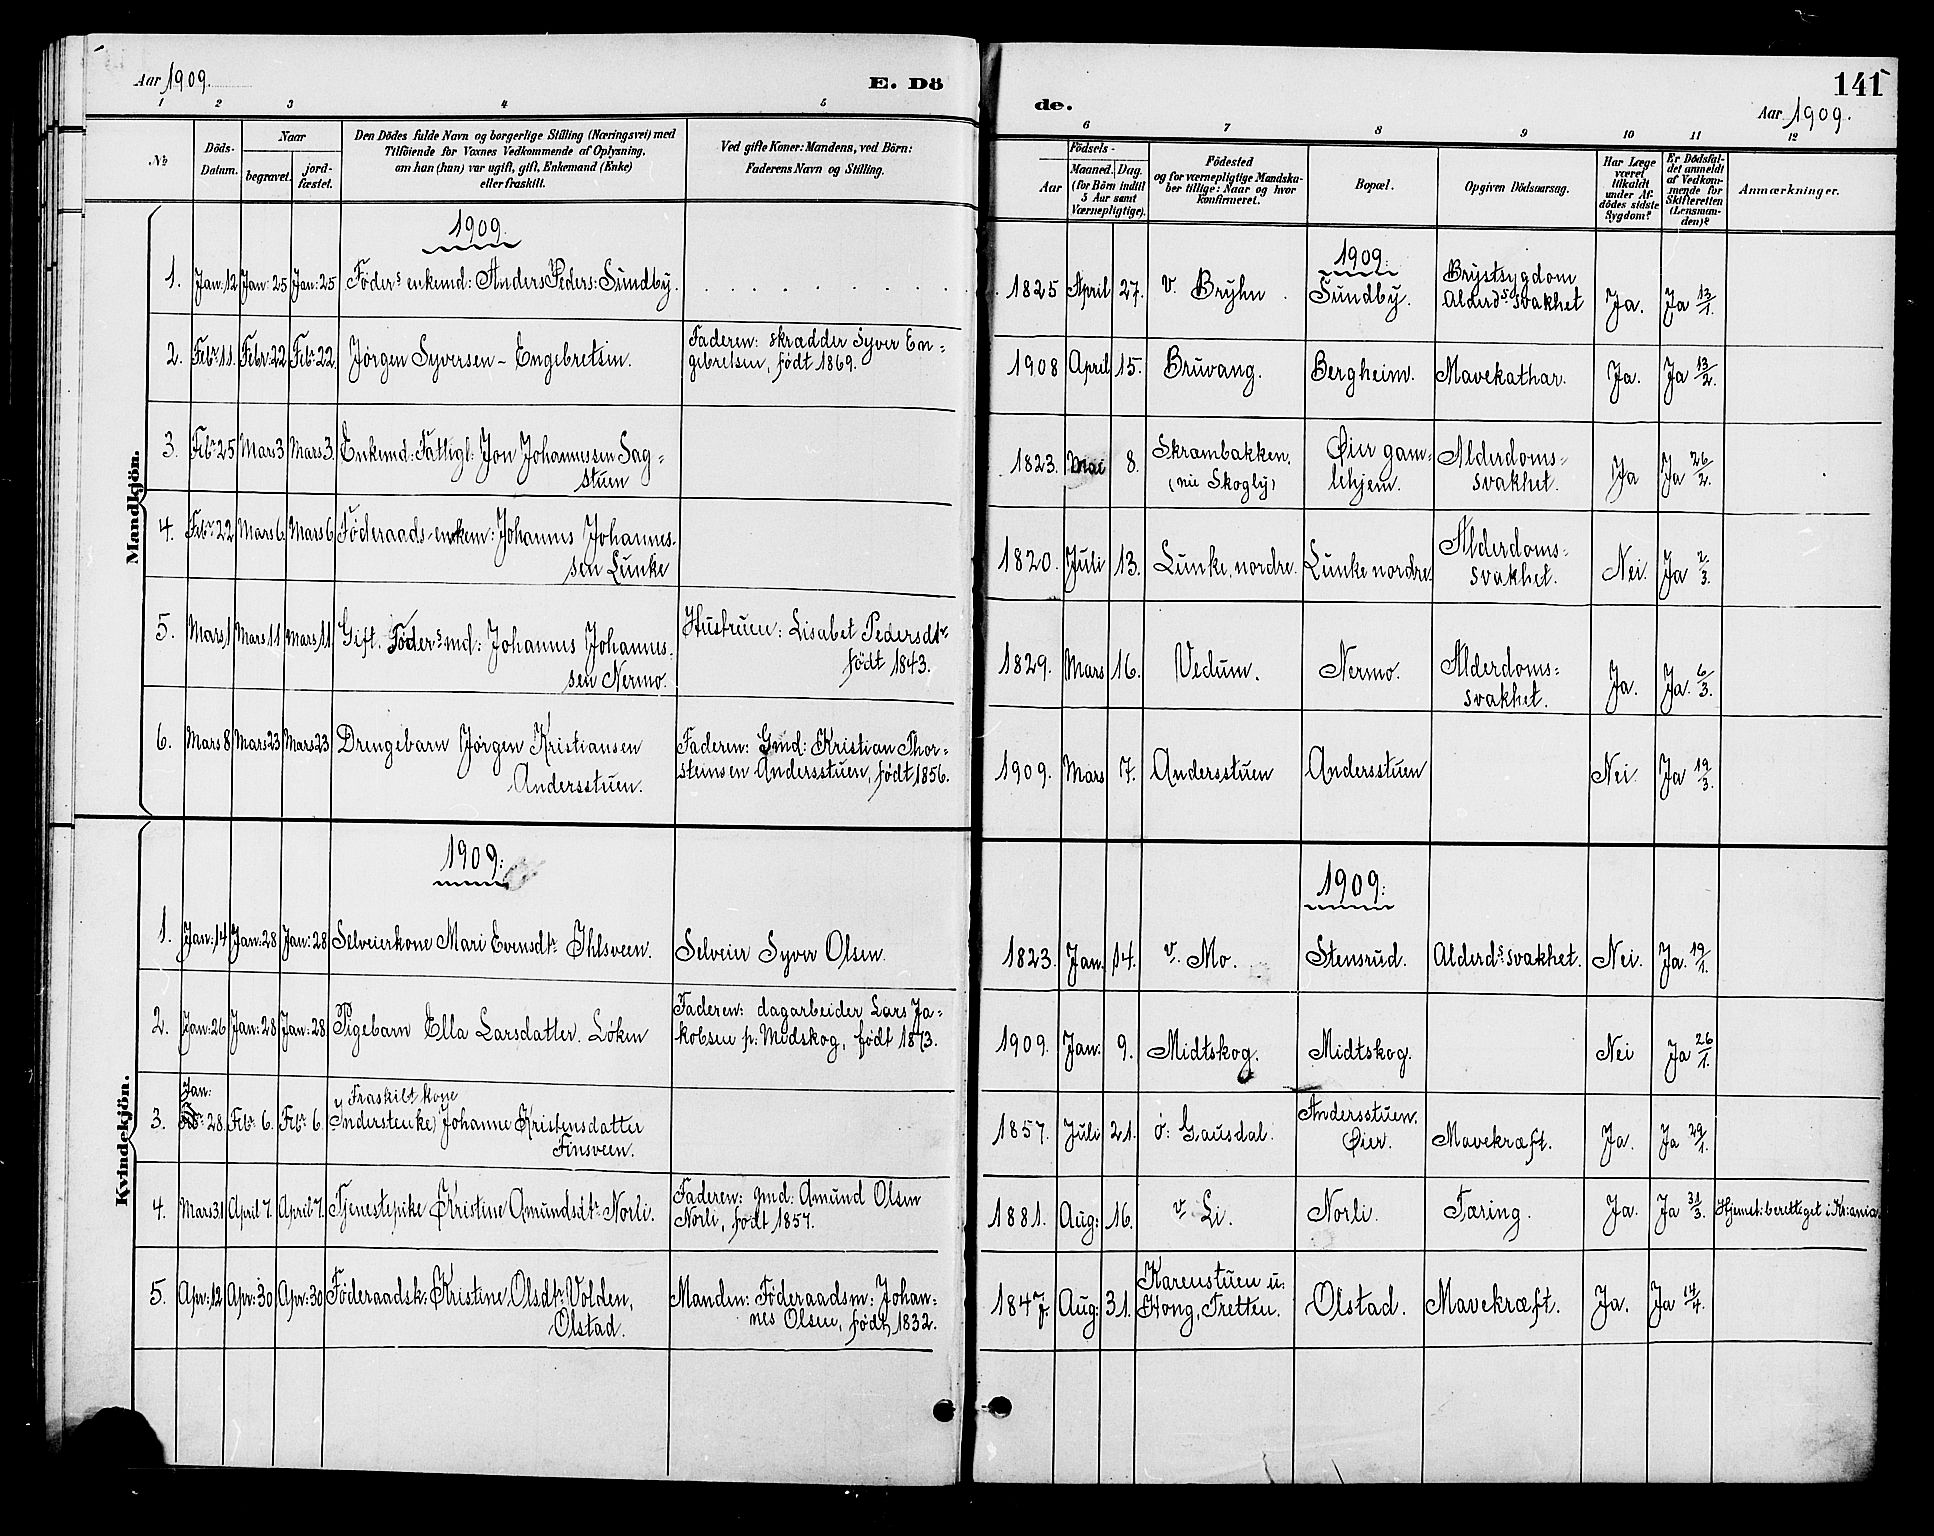 Aar 1909.
E. Dö
1 2 3 4 5
№
Döds-
Datum.
Naar
begravet.
jord-
fæstet.
Den Dödes fulde Navn og borgerlige Stilling (Næringsvei) med
Tilföiende for Voxnes Vedkommende af Oplysning,
om han (hun) var ugift, gift, Enkemand (Enke)
eller fraskilt.
Ved gifte Koner: Mandens, ved Börn:
Faderens Navn og Stilling.
Mandkjön.
1909.
1. Jan: 12 Jan: 25 Jan: 25 Føders enkemd: Anders Peders: Sundby.
2. Febr 11. Febr: 22 Febr. 22. Jørgen Syversen - Engebretsen. Faderen: skradder Syver En-
gebretsen, født 1869.
3. Febr 25 Mars 3 Mars 3. Enkemd: Fattigl: Jon Johannessen Sag-
stuen
4. Febr 22 Mars 6. Mars 6 Føderaads-enkem: Johannes Johannes-
sen Lunke
5. Mars 1 Mars 11 Mars 11. Gift. Føders md: Johannes Johannes-
sen Nermo.
Hustruen: Lisabet Pedersdtr
født 1843.
6. Mars 8 Mars 23 Mars 23 Drengebarn Jørgen Kristiansen
Andersstuen.
Faderen: Gmd: Kristian Thor-
steinsen Andersstuen, født 1856.
Kvindekjön.
1909:
1. Jan: 14 Jan: 28 Jan: 28 Selveierkone Mari Evensdtr Ihlsveen. Selveier Syver Olsen.
2. Jan: 26 Jan: 28 Jan: 28 Pigebarn Ella Larsdatter Løken
Faderen: dagarbeider Lars Ja-
kobsen p: Midskog, født 1873.
3. Jan: 28. Febr 6. Febr 6. Fraskilt kone
Inderstenke) Johanne Kristensdatter
Finsveen.
4. Mars 31 April 7. April 7. Tjenestepike Kristine Amundsdtr Norli.
Faderen: gmd: Amund Olsen
Norli, født 1857.
5. Apr: 12 Apr: 30 Apr: 30 Føderaadsk: Kristine Olsdtr Volden,
Olstad.
Manden: Føderaadsm: Johan-
nes Olsen, født 1832.
de.
141
Aar 1909.
6 7 8 9 10 11 12
Födsels-
Aar
Maaned. Dag.
(for Börn indtil
5 Aar samt
Værnepligtige).
Födested
og for værnepligtige Mandska-
ber tillige: Naar og hvor
konfirmeret.
Bopæl.
Opgiven Dödsaarsag.
Har Læge
været
tilkaldt
under Af-
dödes sidste
Sygdom?
Er Dödsfal-
det anmeldt
af Vedkom-
mende for
Skifteretten
(Lensman-
den)?
Anmærkninger.
1909:
1825 April 27. v. Bryhn. Sundby. Brystsygdom
Alderds svakhet Ja. Ja 13/1.
1908 April 15. Bruvang. Bergheim. Mavekathar. Ja. Ja 13/2.
1823. Mai 8. Skrambakken.
(nu Skogly) Øier gam-
lehjem. Alderdoms-
svakhet. Ja Ja 26/2.
1820. Juli 13. Lunke, nordre. Lunke nordre. Alderdoms-
svakhet. Nei. Ja 2/3.
1829. Mars 16. Vedum. Nermo. Alderdoms-
svakhet. Ja. Ja. 6/3.
1909. Mars 7. Andersstuen Andersstuen Nei Ja 19/3.
1909:
1823. Jan. 14. v. Mo. Stensrud. Alderds svakhet. Nei. Ja. 19/1.
1909. Jan: 9. Midtskog. Midtskog. Nei Ja 26/1.
1857. Juli 21. ø: Gausdal. Andersstuen.
Øier. Mavekræft. Ja. Ja 29/1.
1881. Aug: 16. v Li. Norli. Tæring. Ja. Ja 31/3. Hjemst: berettiget i Kr:ania.
1847. Aug: 31. Karenstuen u:
Hong, Tretten. Olstad. Mavekræft. Ja. Ja 14/4.